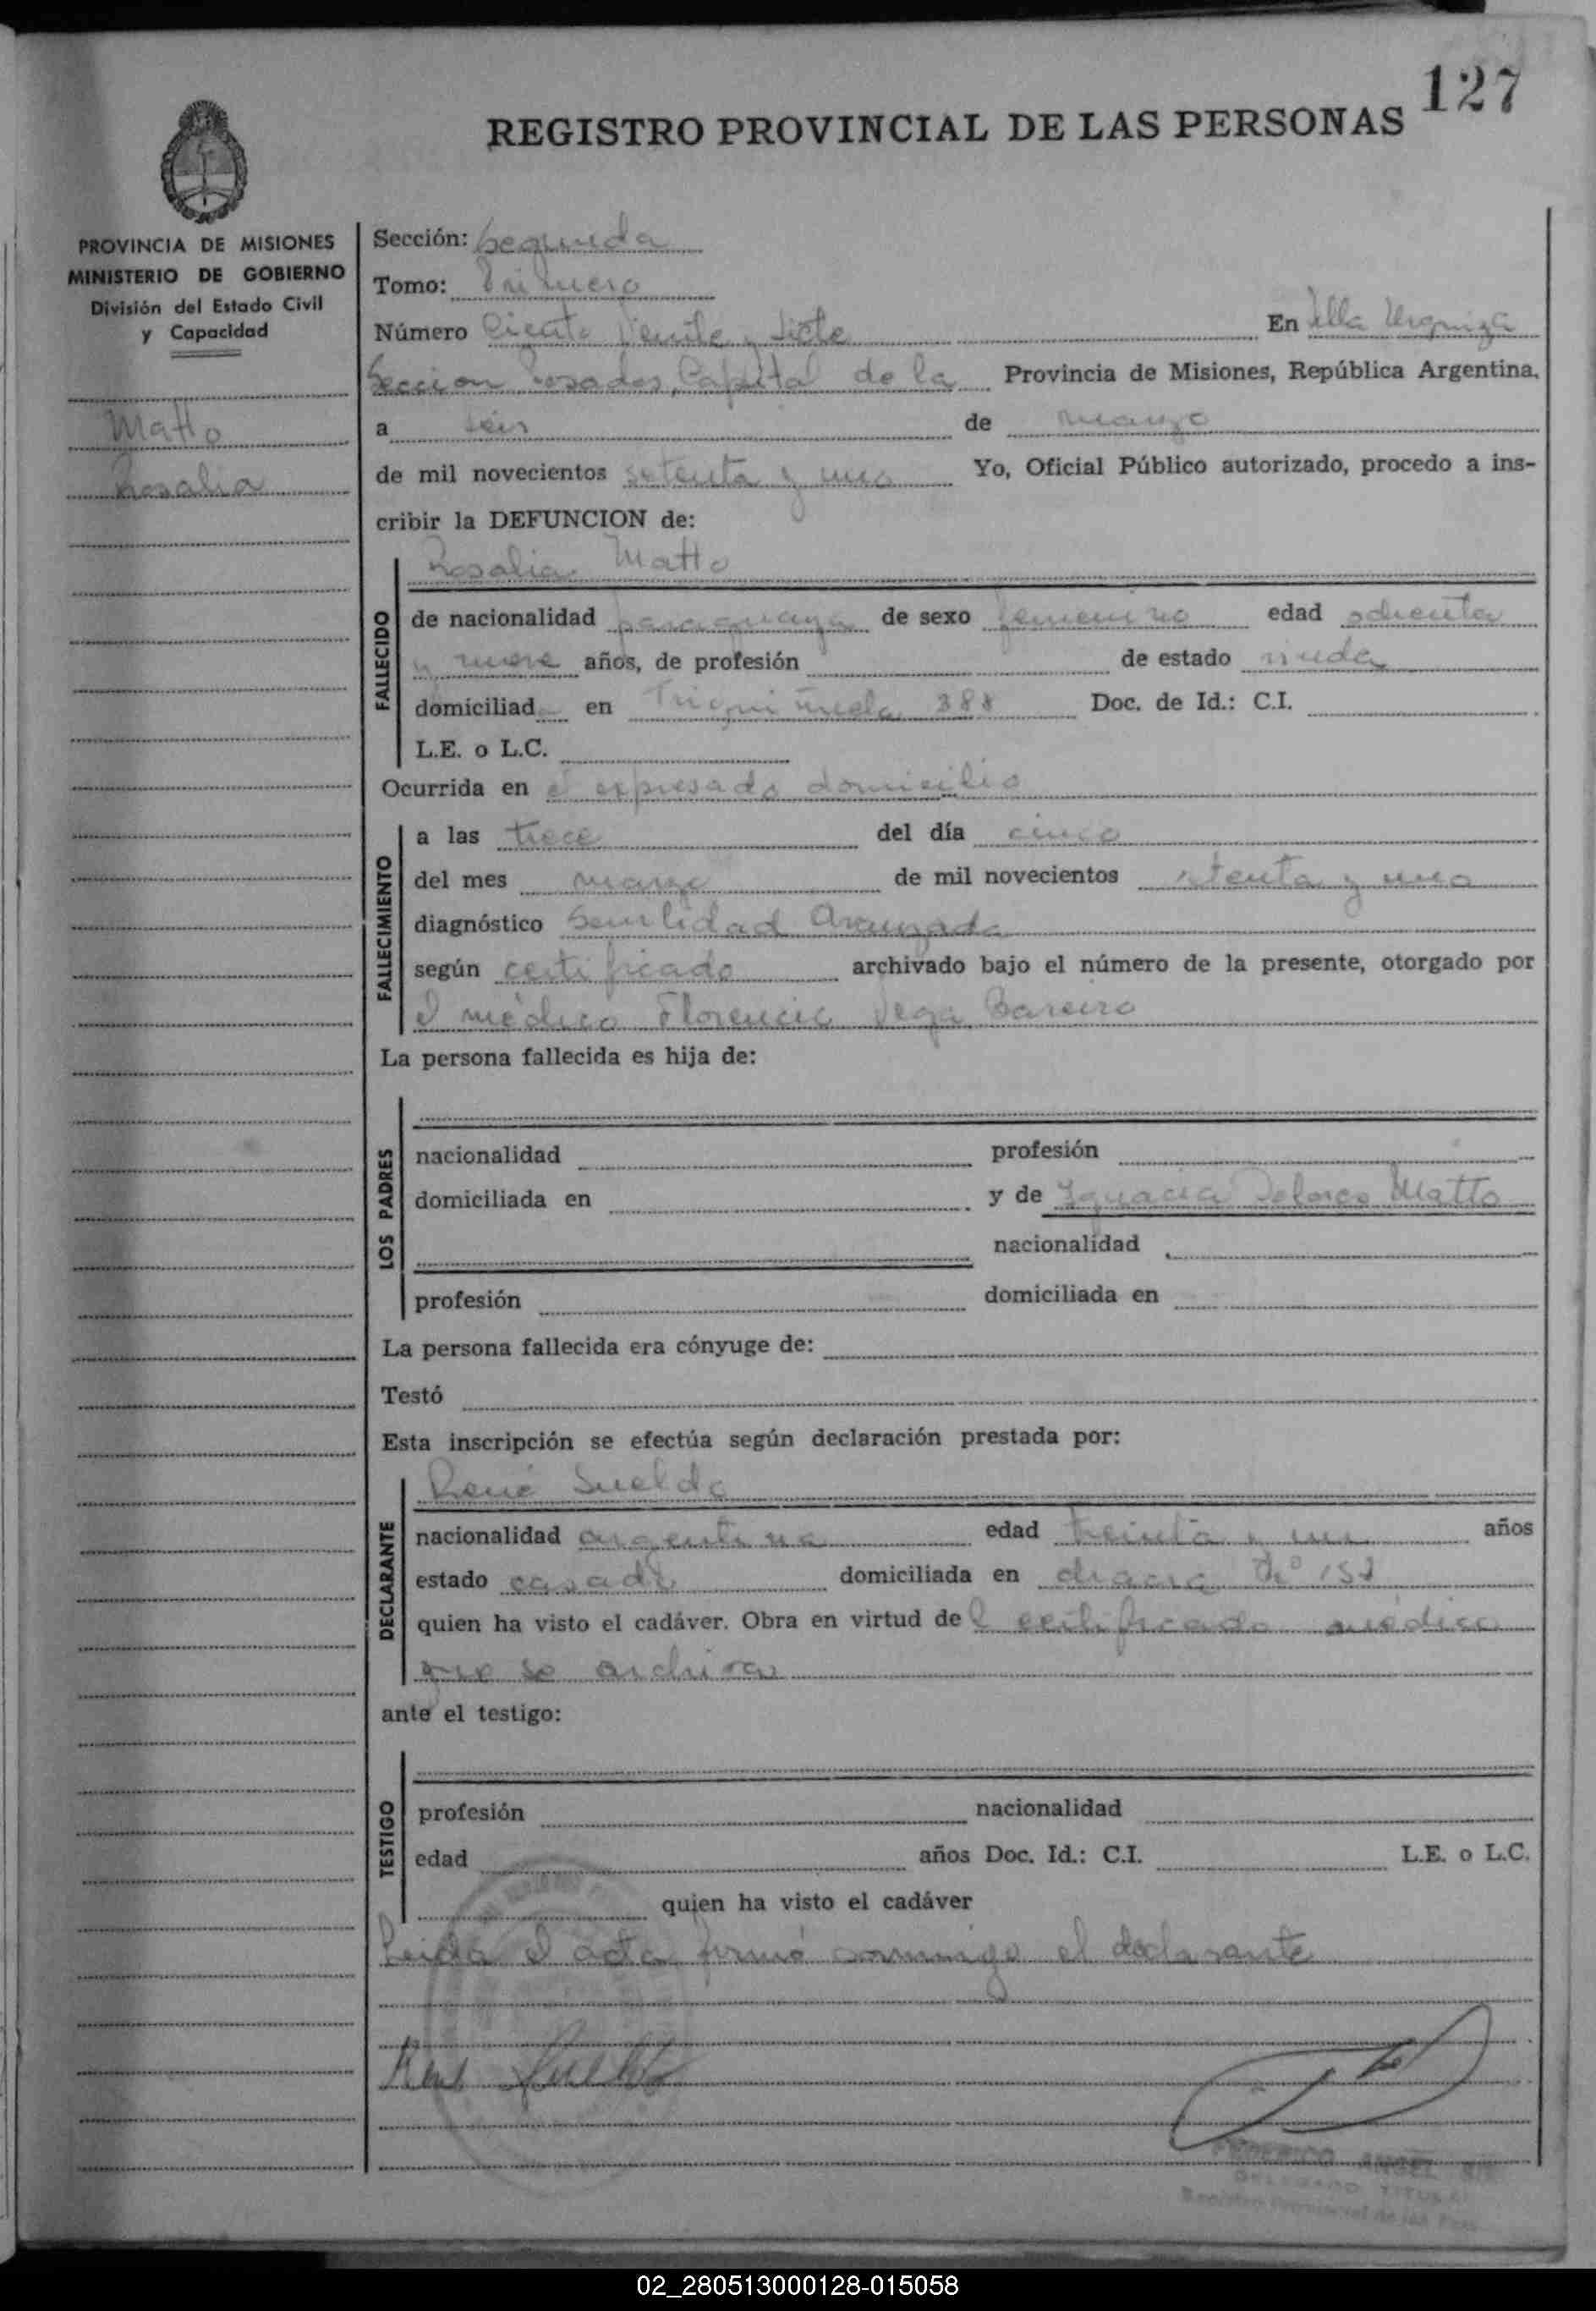 127
REGISTRO PROVINCIAL DE LAS PERSONAS
PROVINCIA DE MISIONES
MINISTERIO DE GOBIERNO
División del Estado Civil
y Capacidad
Matto
Rosalia
Sección: Segunda
Tomo: Primero
Número Ciento Veinte y Siete En Villa Urquiza
Seccion Posadas, Capital de la Provincia de Misiones, República Argentina,
a seis de marzo
de mil novecientos setenta y uno Yo, Oficial Público autorizado, procedo a ins-
cribir la DEFUNCION de:
FALLECIDO
Rosalia Matto
de nacionalidad paraguaya de sexo femenino edad ochenta
y nueve años, de profesión de estado viuda
domiciliad en 388 Doc. de Id.: C.I.
L.E. o L.C.
Ocurrida en el expresado domicilio
FALLECIMIENTO
a las trece del día cinco
del mes marzo de mil novecientos setenta y uno
diagnóstico Senilidad Avanzada
según certificado archivado bajo el número de la presente, otorgado por
el médico Florencio Vega Bareiro
La persona fallecida es hija de:
LOS PADRES
nacionalidad profesión
domiciliada en y de Ignacia Dolores Matto
nacionalidad
profesión domiciliada en
La persona fallecida era cónyuge de:
Testó
Esta inscripción se efectúa según declaración prestada por:
DECLARANTE
René Sueldo
nacionalidad argentina edad treinta y un años
estado casado domiciliada en chacra Nº
quien ha visto el cadáver. Obra en virtud del certificado médico
que se archiva
ante el testigo:
TESTIGO
profesión nacionalidad
edad años Doc. Id.: C.I. L.E. o L.C.
quien ha visto el cadáver
Leida el acta firmó conmigo el declarante
FEDERICO ANGEL
DELEGADO TITULAR
Registro Provincial de las Pers.
02_280513000128-015058